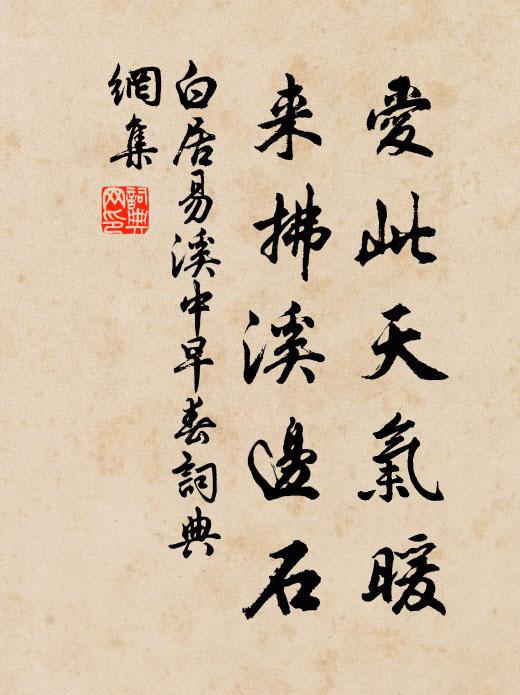 愛此天氣暖
来拂溪邊石
白居易溪中早春詞典
網集
詞典
网印